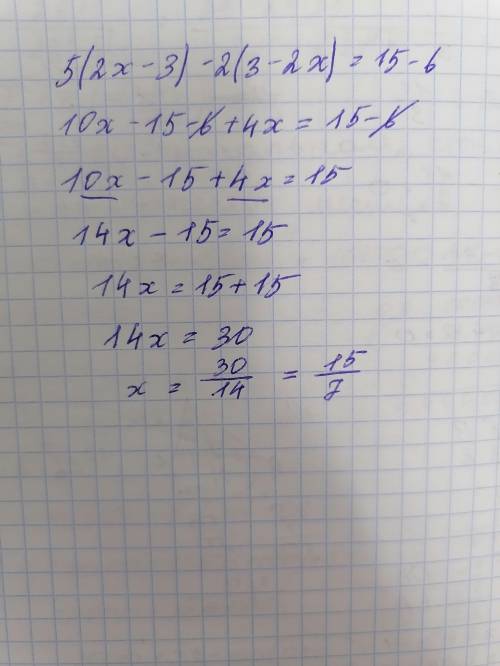 5(2x-3)-2(3-2x)=15-6
10x-15-6+4x=15-6
10x-15+4x=15
14x-15=15
14x=15+15
14x=30
x = 30/14 = 15/7